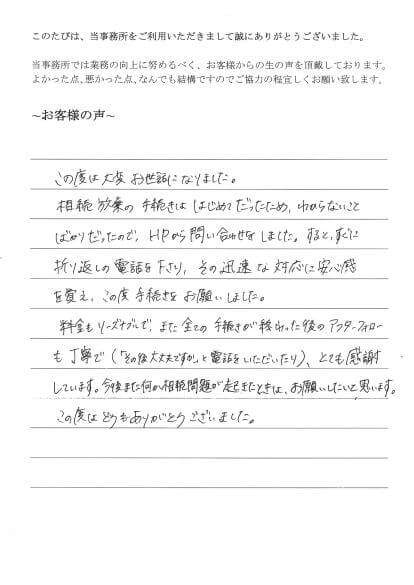 このたびは、当事務所をご利用いただきまして誠にありがとうございました。
当事務所では業務の向上に努めるべく、お客様からの生の声を頂戴しております。
よかった点、悪かった点、なんでも結構ですのでご協力の程宜しくお願い致します。
~お客様の声~
この度は大変お世話になりました。
相続放棄の手続きは はじめてだったため、わからないこと
ばかりだったので、HPから問い合わせをしました。すると、すぐに
折り返しの電話を下さり、その迅速な対応に安心感
を覚え、この度手続きをお願いしました。
料金もリーズナブルで、また全ての手続きが終わった後のアフターフォロー
も丁寧で(「その後大丈夫ですか」と電話をいただいたり)、とても感謝
しています。今後また何か相続問題が起きたときは、お願いしたいと思います。
この度はどうもありがとうございました。